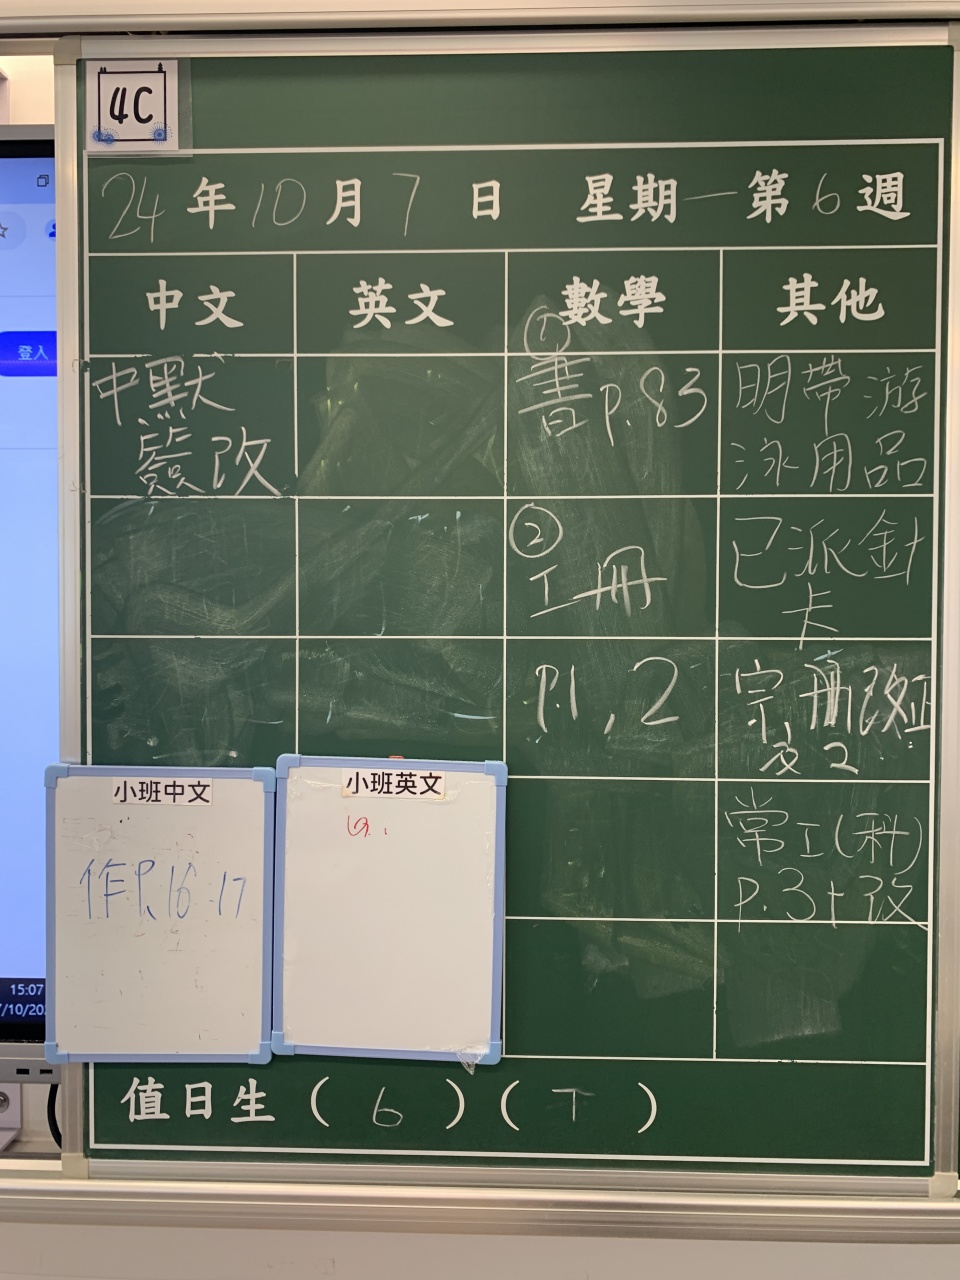 4C
24年10月7日 星期一第6週
中文 英文 數學 其他
中默
簽改
①
書P.83
②
工冊
P.1, 2
明帶游
泳用品
已派針
卡
宗冊改正
及2
常工(科)
P.3+改
小班中文
作P.16 17
小班英文
登入
15:07
7/10/20
值日生(6)(下)